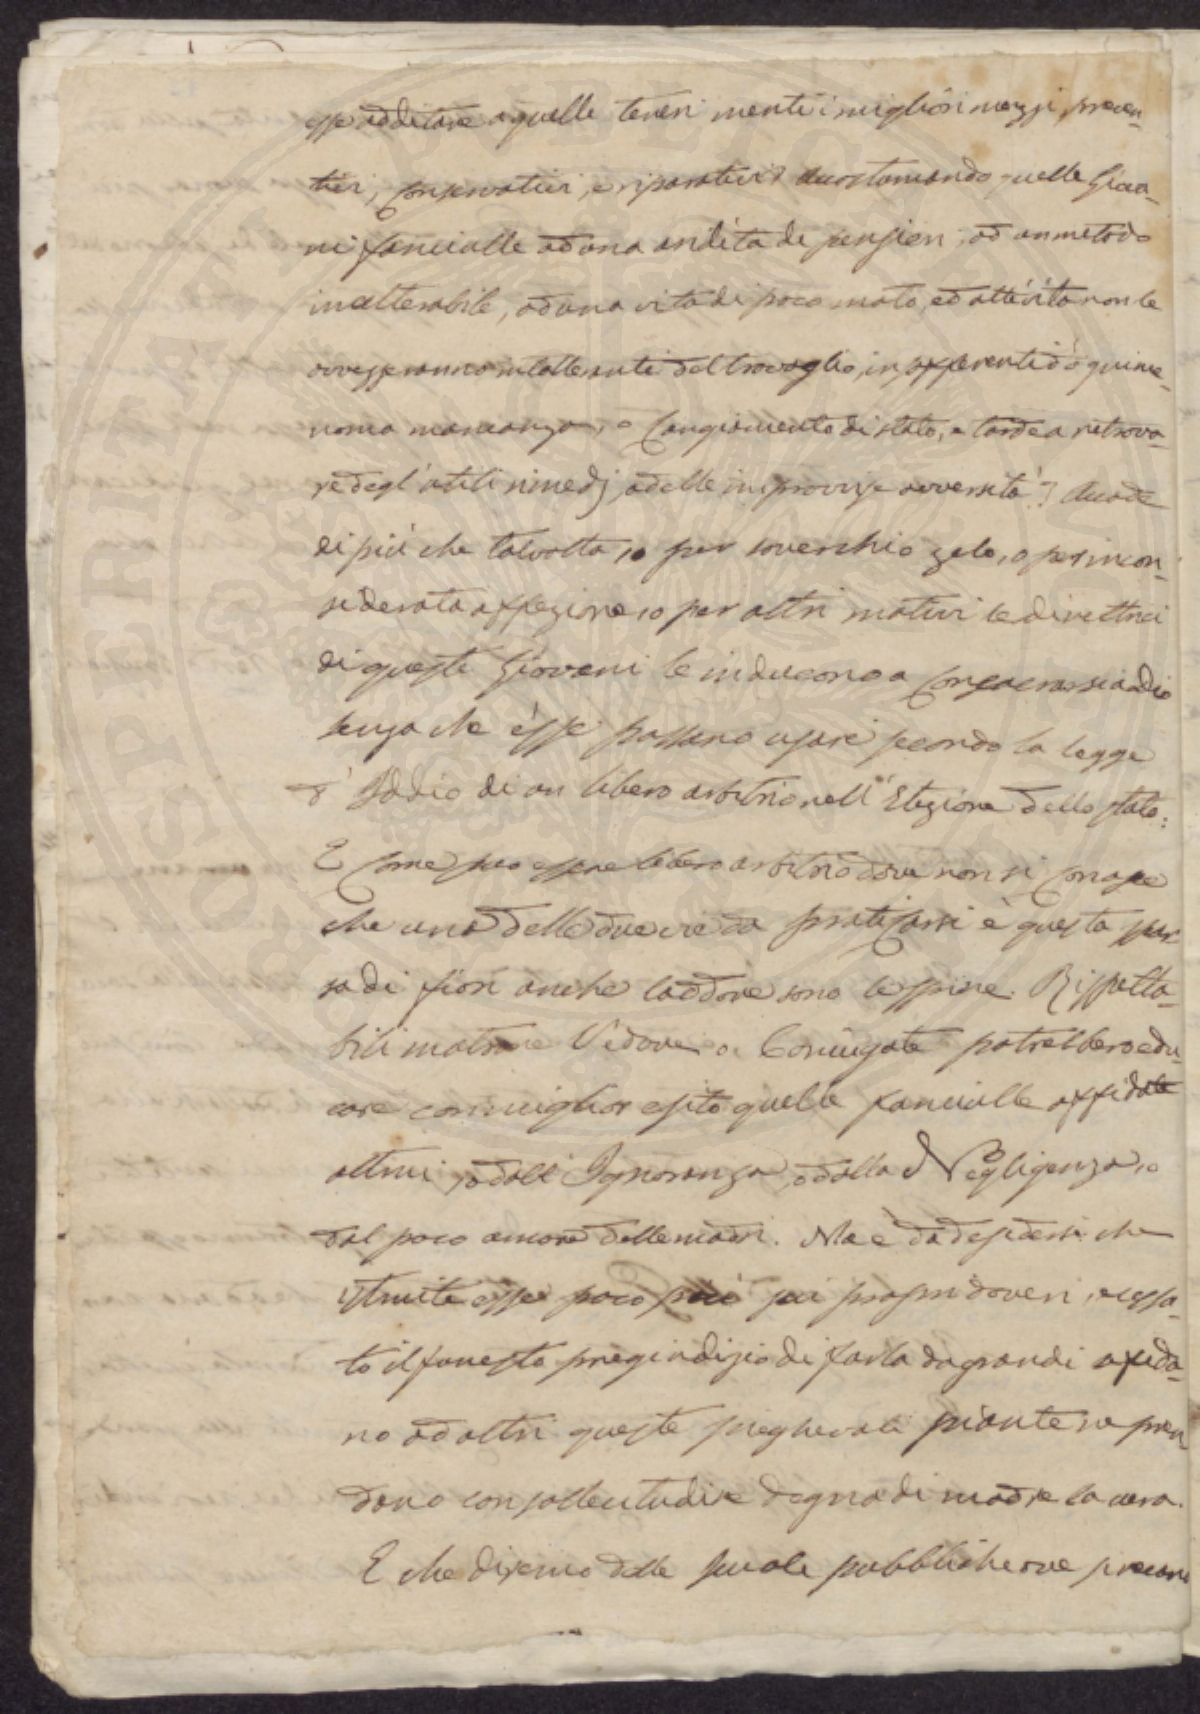 esse additare a quelle teneri menti i migliori mezzi preven-
tivi, conservativi, e riparativi? Accostumando quelle Giova-
ni fanciulle ad una aridità di pensieri, ad un metodo
inalterabile, ad una vita di poco moto, ed attività non le
avvezzeranno intolleranti del travaglio, in
noma mancanza, o Cangiamento di stato, e tarde a ritrova-
re degl'utili rimedj, a delle improvise avversità? Accade
di più che talvolta, o per soverchio zelo, o per incon-
siderata affezione, o per altri motivi le direttrici
di queste Giovani le inducono a Consacrarsi a dio
senza che esse possano usare secondo la legge
d'Iddio di un libero arbitrio nell'Elezione dello stato:
E Come può essere libero arbitrio dove non si Conosce
che una delle due vie da praticarsi e questa spar-
sa di fiori anche laddove sono le spine. Rispetta-
bili matrone Vedove o Coniugate potrebbero edu-
care con miglior esito quelle fanciulle affidate
altrui, o dall'Ignoranza, o dalla Negligenza, o
dal poco amore delle madri. Ma è da desiderarsi che
istruite esse poco più sui propri doveri, e cessa-
to il funesto pregiudizio di farla da grandi affida-
no ad altri queste pieghevoli piante ne pren
dano con sollecitudine degna di madre la cura.
E che diremo delle scuole pubbliche ove si recano